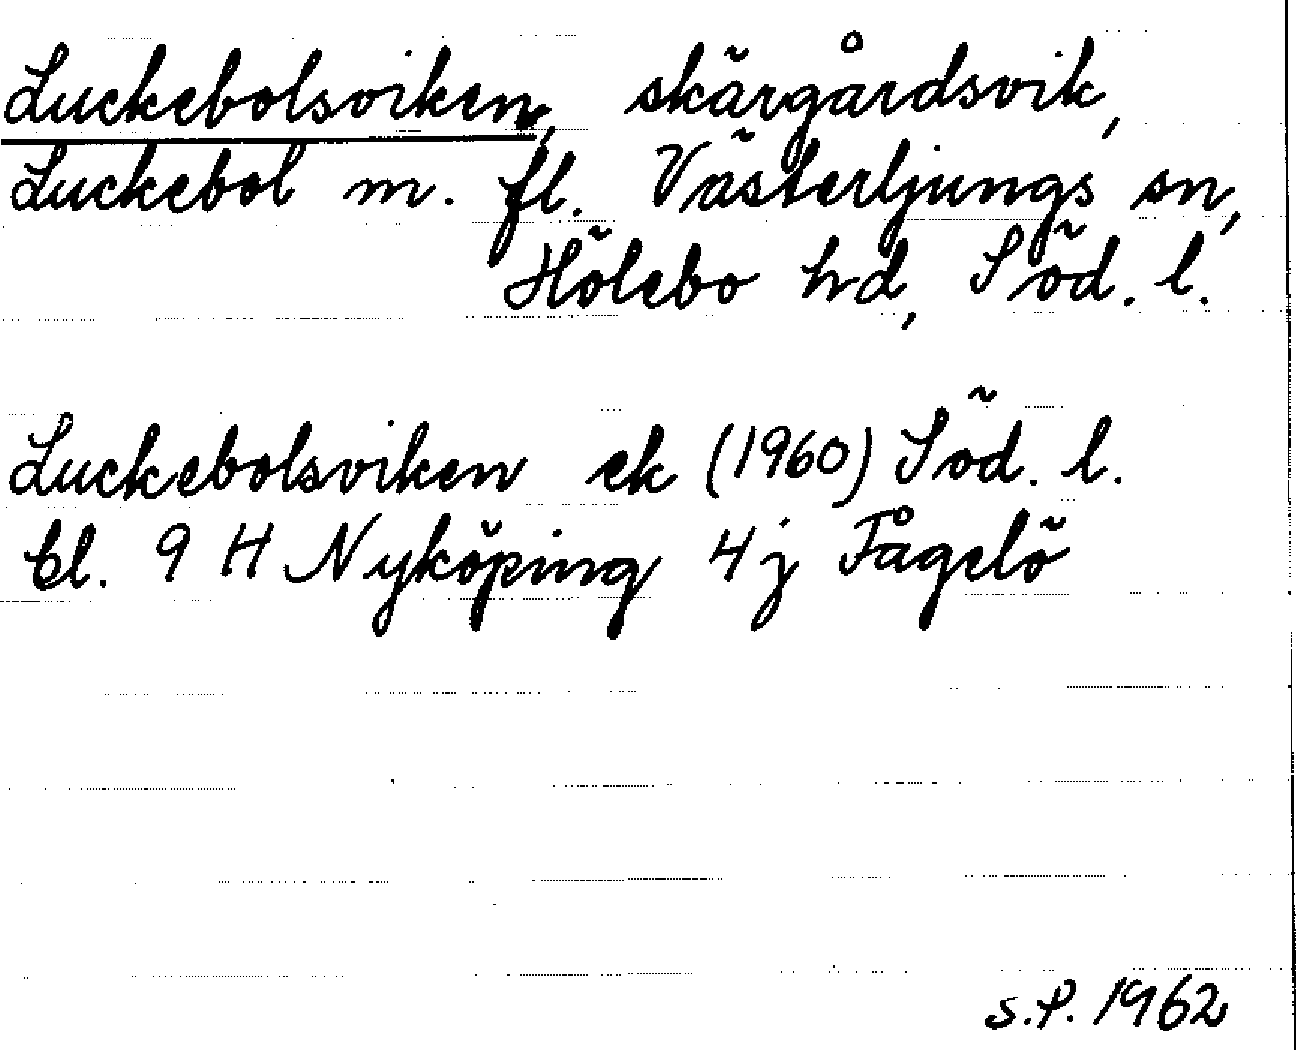 Luckebolsviken, skärgårdsvik,
Luckebol m. fl. Västerljungs sn,
Hölebo hd, Söd. l.
Luckebolsviken ek (1960) Söd. l.
bl. 9 H Nyköping 4j Fågelö
S.P. 1962